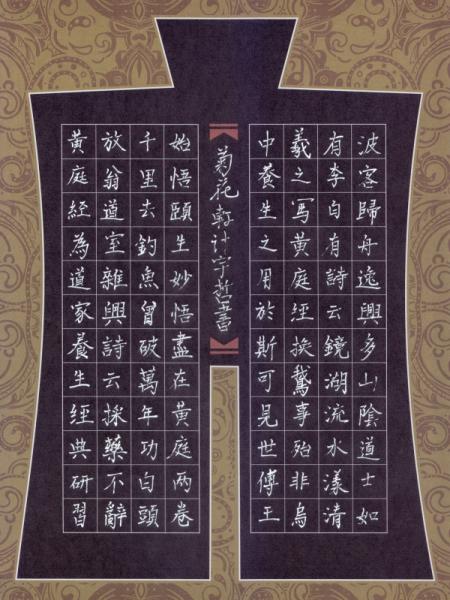 黃庭經為道家養生經典研習
放翁道室雜興詩云採藥不辭
千里去釣魚曾破萬年功白頭
始悟頤生妙悟盡在黃庭兩卷
中養生之用於斯可見世傳王
羲之寫黃庭經換鵝事殆非烏
有李白有詩云鏡湖流水漾清
波客歸舟逸興多山陰道士如
菊花軒計宇哲書